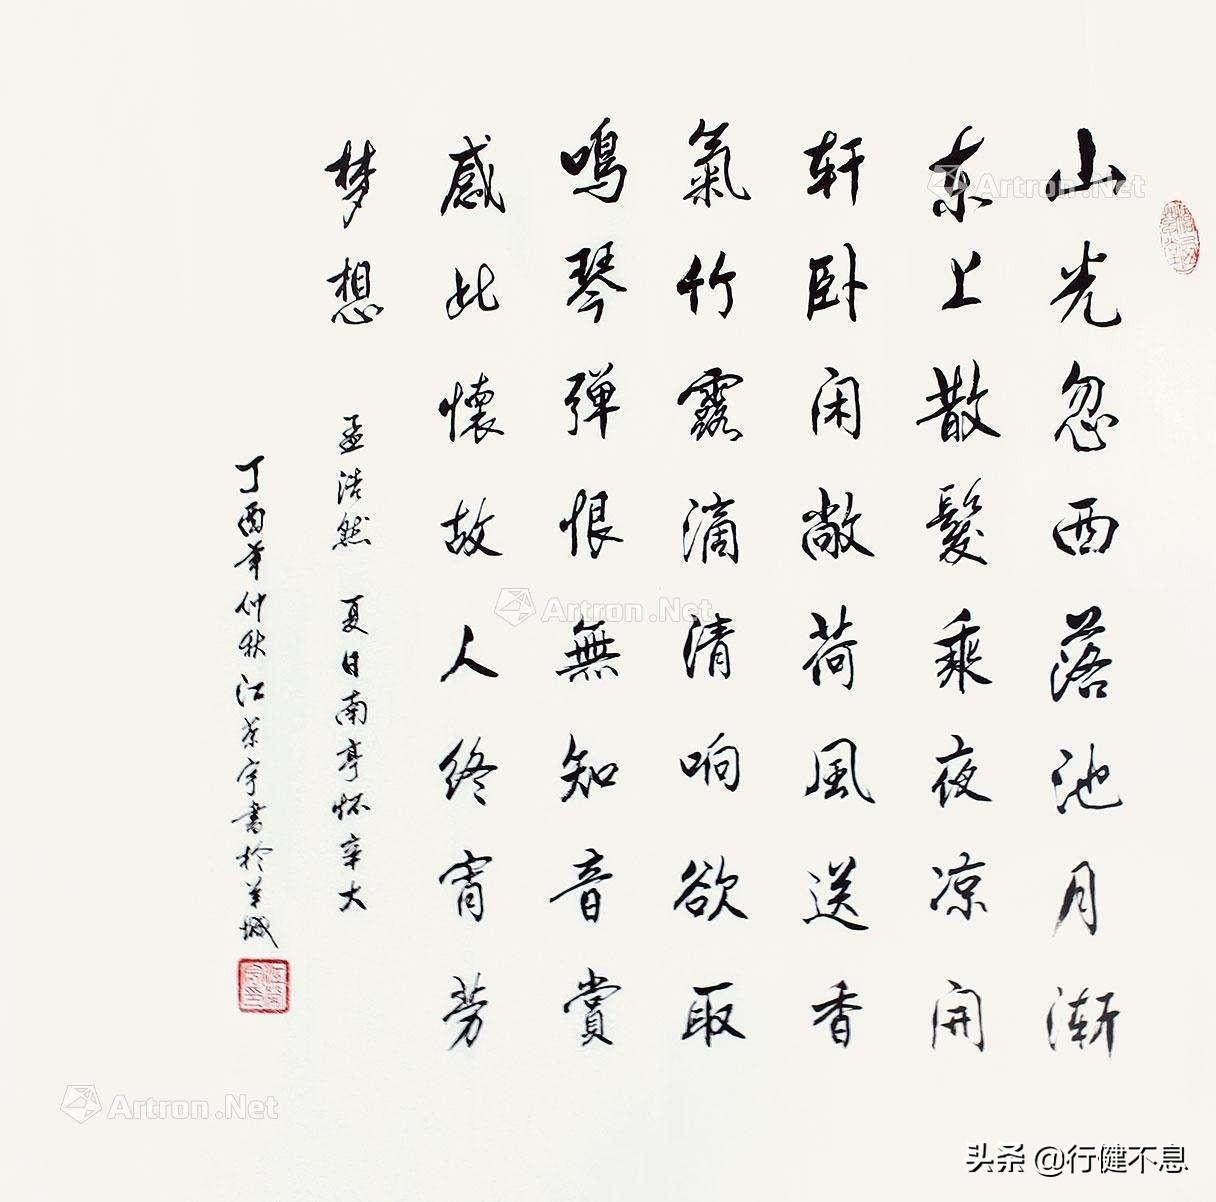 山光忽西落池月渐
东上散髮乘夜凉开
轩卧闲敞荷風送香
氣竹露滴清响欲取
鳴琴弹恨無知音賞
感此懷故人终宵劳
梦想 孟浩然 夏日南亭怀辛大
丁酉年仲秋江荣宇書於羊城
Artron.Net
Artron.Net
Artron.Net
头条 @行健不息